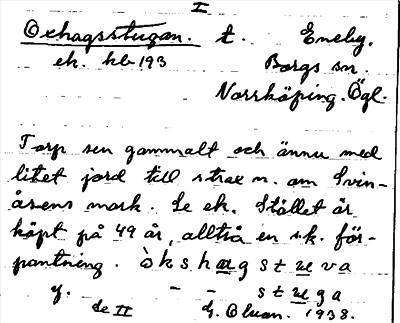 I
Oxhagsstugan. t. Eneby.
ek. kb 193 Borgs sn.
Norrköping. Ögl.
Torp sen gammalt och ännu med
litet jord till strax n. om Svin-
åsens mark. Se ek. Stället är
köpt på 49 år, alltså en s.k. för-
pantning. òkshagstuva
y. - - stuga
se II G. Cluan. 1938.